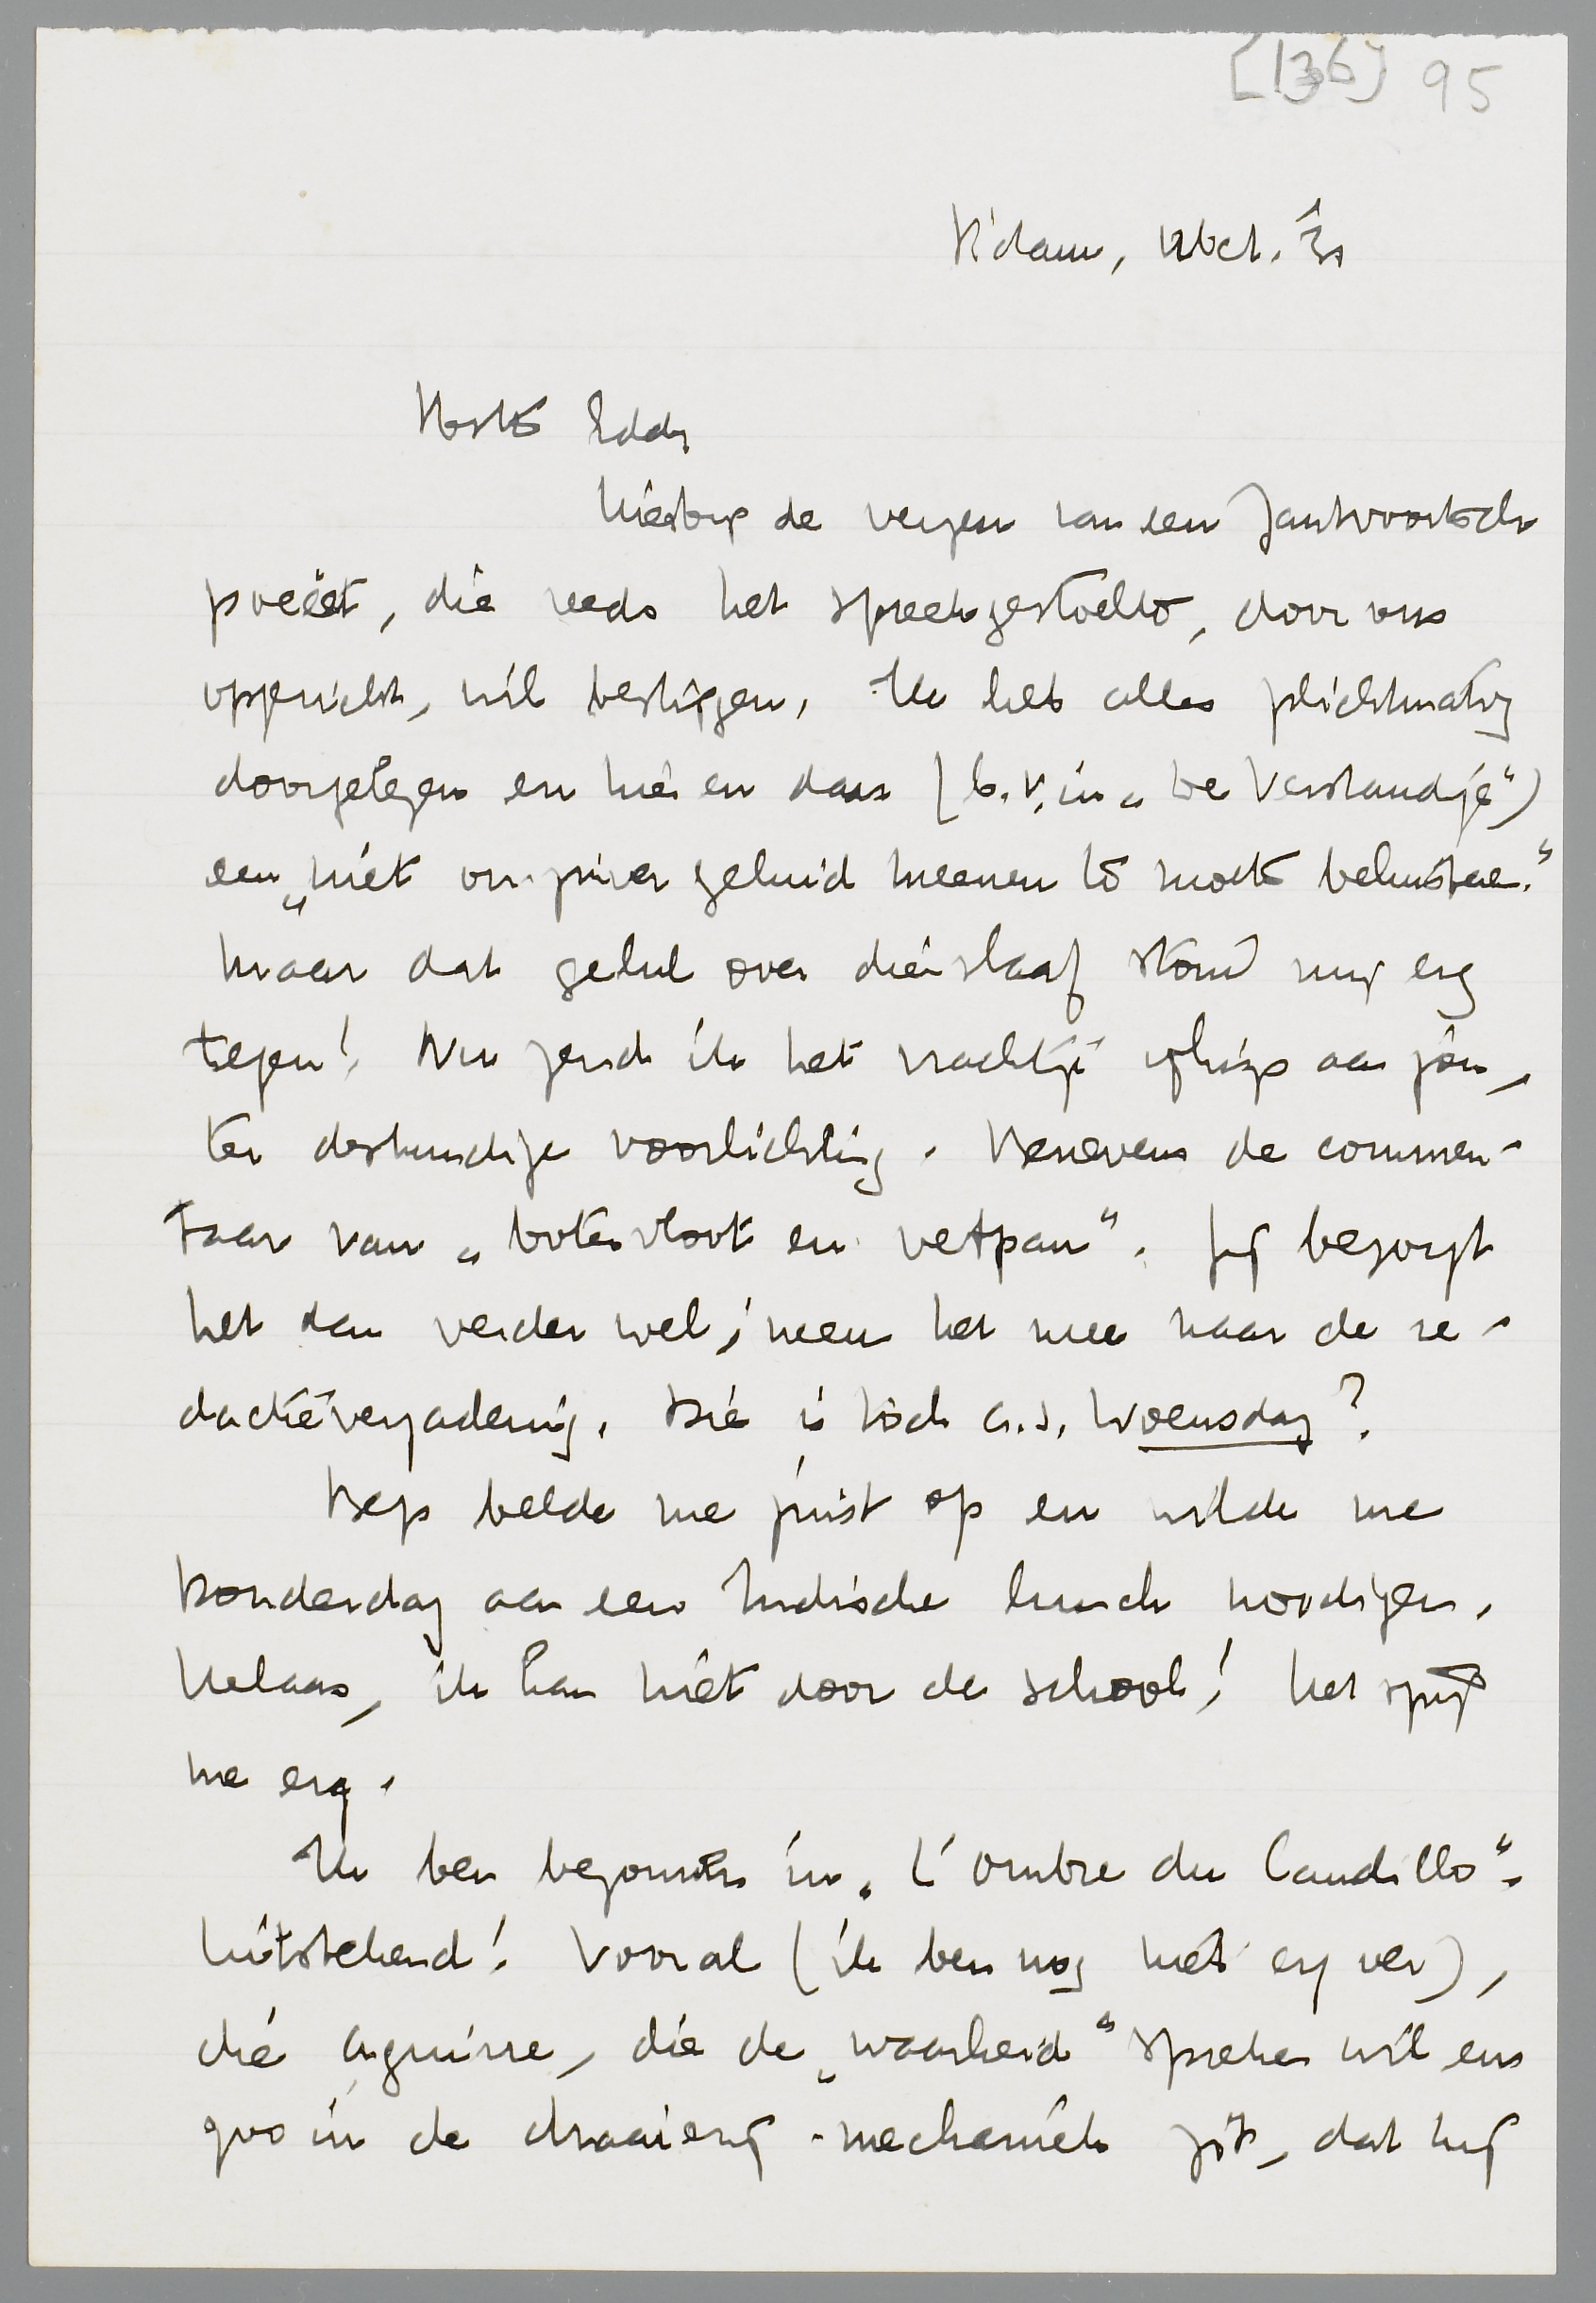 [136] 95
R'dam, 12 Oct. '31
Beste Eddy
Hierbij de verzen van een Zantvoortsch
poëet, die reeds het spreekgestoelte, door ons
opgericht, wil bestijgen. Ik heb alles plichtmatig
doorgelezen en hier en daar (b.v. in „De Verstandige")
een „niet onzuiver geluid meenen te moeten beluisteren."
Maar dat gelul over die slaaf stond mij erg
tegen! Nu zend ik het vrachtje ijlings aan jou,
ter deskundige voorlichting. Benevens de commen-
taar van „botervloot en vetpan". Jij bezorgt
het dan verder wel; neem het mee naar de re-
dactievergadering. Die is toch a.s. Woensdag?
Bep belde me juist op en wilde me
Donderdag aan een Indische lunch noodigen.
Helaas, ik kan niet door de school! Het spijt
me erg.
Ik ben begonnen in „L'ombre du Caudillo".
Uitstekend! Vooral (ik ben nog niet erg ver),
die Aguirre, die de „waarheid" spreken wil en
zoo in de draaierij-mechaniek zit, dat hij